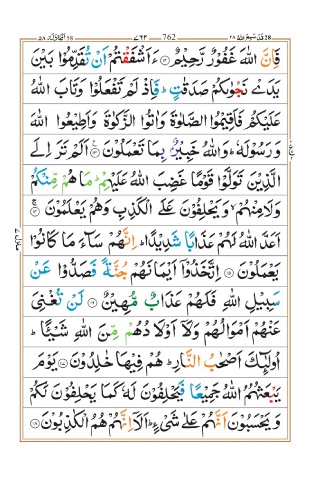 قد سمع الله ٢٨ 762 ٧٦٢ المجادلة ٥٨
فَاِنَّ اللّٰهَ غَفُوْرٌ رَّحِيْمٌ ﴿١٢﴾ ءَاَشْفَقْتُمْ اَنْ تُقَدِّمُوْا بَيْنَ
يَدَىْ نَجْوٰىكُمْ صَدَقٰتٍ ؕ فَاِذْ لَمْ تَفْعَلُوْا وَتَابَ اللّٰهُ
عَلَيْكُمْ فَاَقِيْمُوا الصَّلٰوةَ وَاٰتُوا الزَّكٰوةَ وَاَطِيْعُوا اللّٰهَ
وَرَسُوْلَهٗ ؕ وَاللّٰهُ خَبِيْرٌۢ بِمَا تَعْمَلُوْنَ ﴿١٣﴾ اَلَمْ تَرَ اِلَى
الَّذِيْنَ تَوَلَّوْا قَوْمًا غَضِبَ اللّٰهُ عَلَيْهِمْ ؕ مَا هُمْ مِّنْكُمْ
وَلَا مِنْهُمْ ۙ وَيَحْلِفُوْنَ عَلَى الْكَذِبِ وَهُمْ يَعْلَمُوْنَ ﴿١٤﴾
اَعَدَّ اللّٰهُ لَهُمْ عَذَابًا شَدِيْدًا ؕ اِنَّهُمْ سَآءَ مَا كَانُوْا
يَعْمَلُوْنَ ﴿١٥﴾ اِتَّخَذُوْۤا اَيْمَانَهُمْ جُنَّةً فَصَدُّوْا عَنْ
سَبِيْلِ اللّٰهِ فَلَهُمْ عَذَابٌ مُّهِيْنٌ ﴿١٦﴾ لَنْ تُغْنِىَ
عَنْهُمْ اَمْوَالُهُمْ وَلَاۤ اَوْلَادُهُمْ مِّنَ اللّٰهِ شَيْـًٔا ؕ
اُولٰٓئِكَ اَصْحٰبُ النَّارِ ؕ هُمْ فِيْهَا خٰلِدُوْنَ ﴿١٧﴾ يَوْمَ
يَبْعَثُهُمُ اللّٰهُ جَمِيْعًا فَيَحْلِفُوْنَ لَهٗ كَمَا يَحْلِفُوْنَ لَكُمْ
وَيَحْسَبُوْنَ اَنَّهُمْ عَلٰى شَىْءٍ ؕ اَلَاۤ اِنَّهُمْ هُمُ الْكٰذِبُوْنَ ﴿١٨﴾